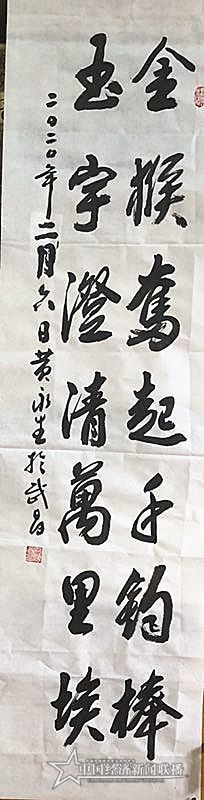 金猴奮起千鈞棒
玉宇澄清萬里埃
二〇二〇年二月六日黄永生於武昌
中国经济新闻联播